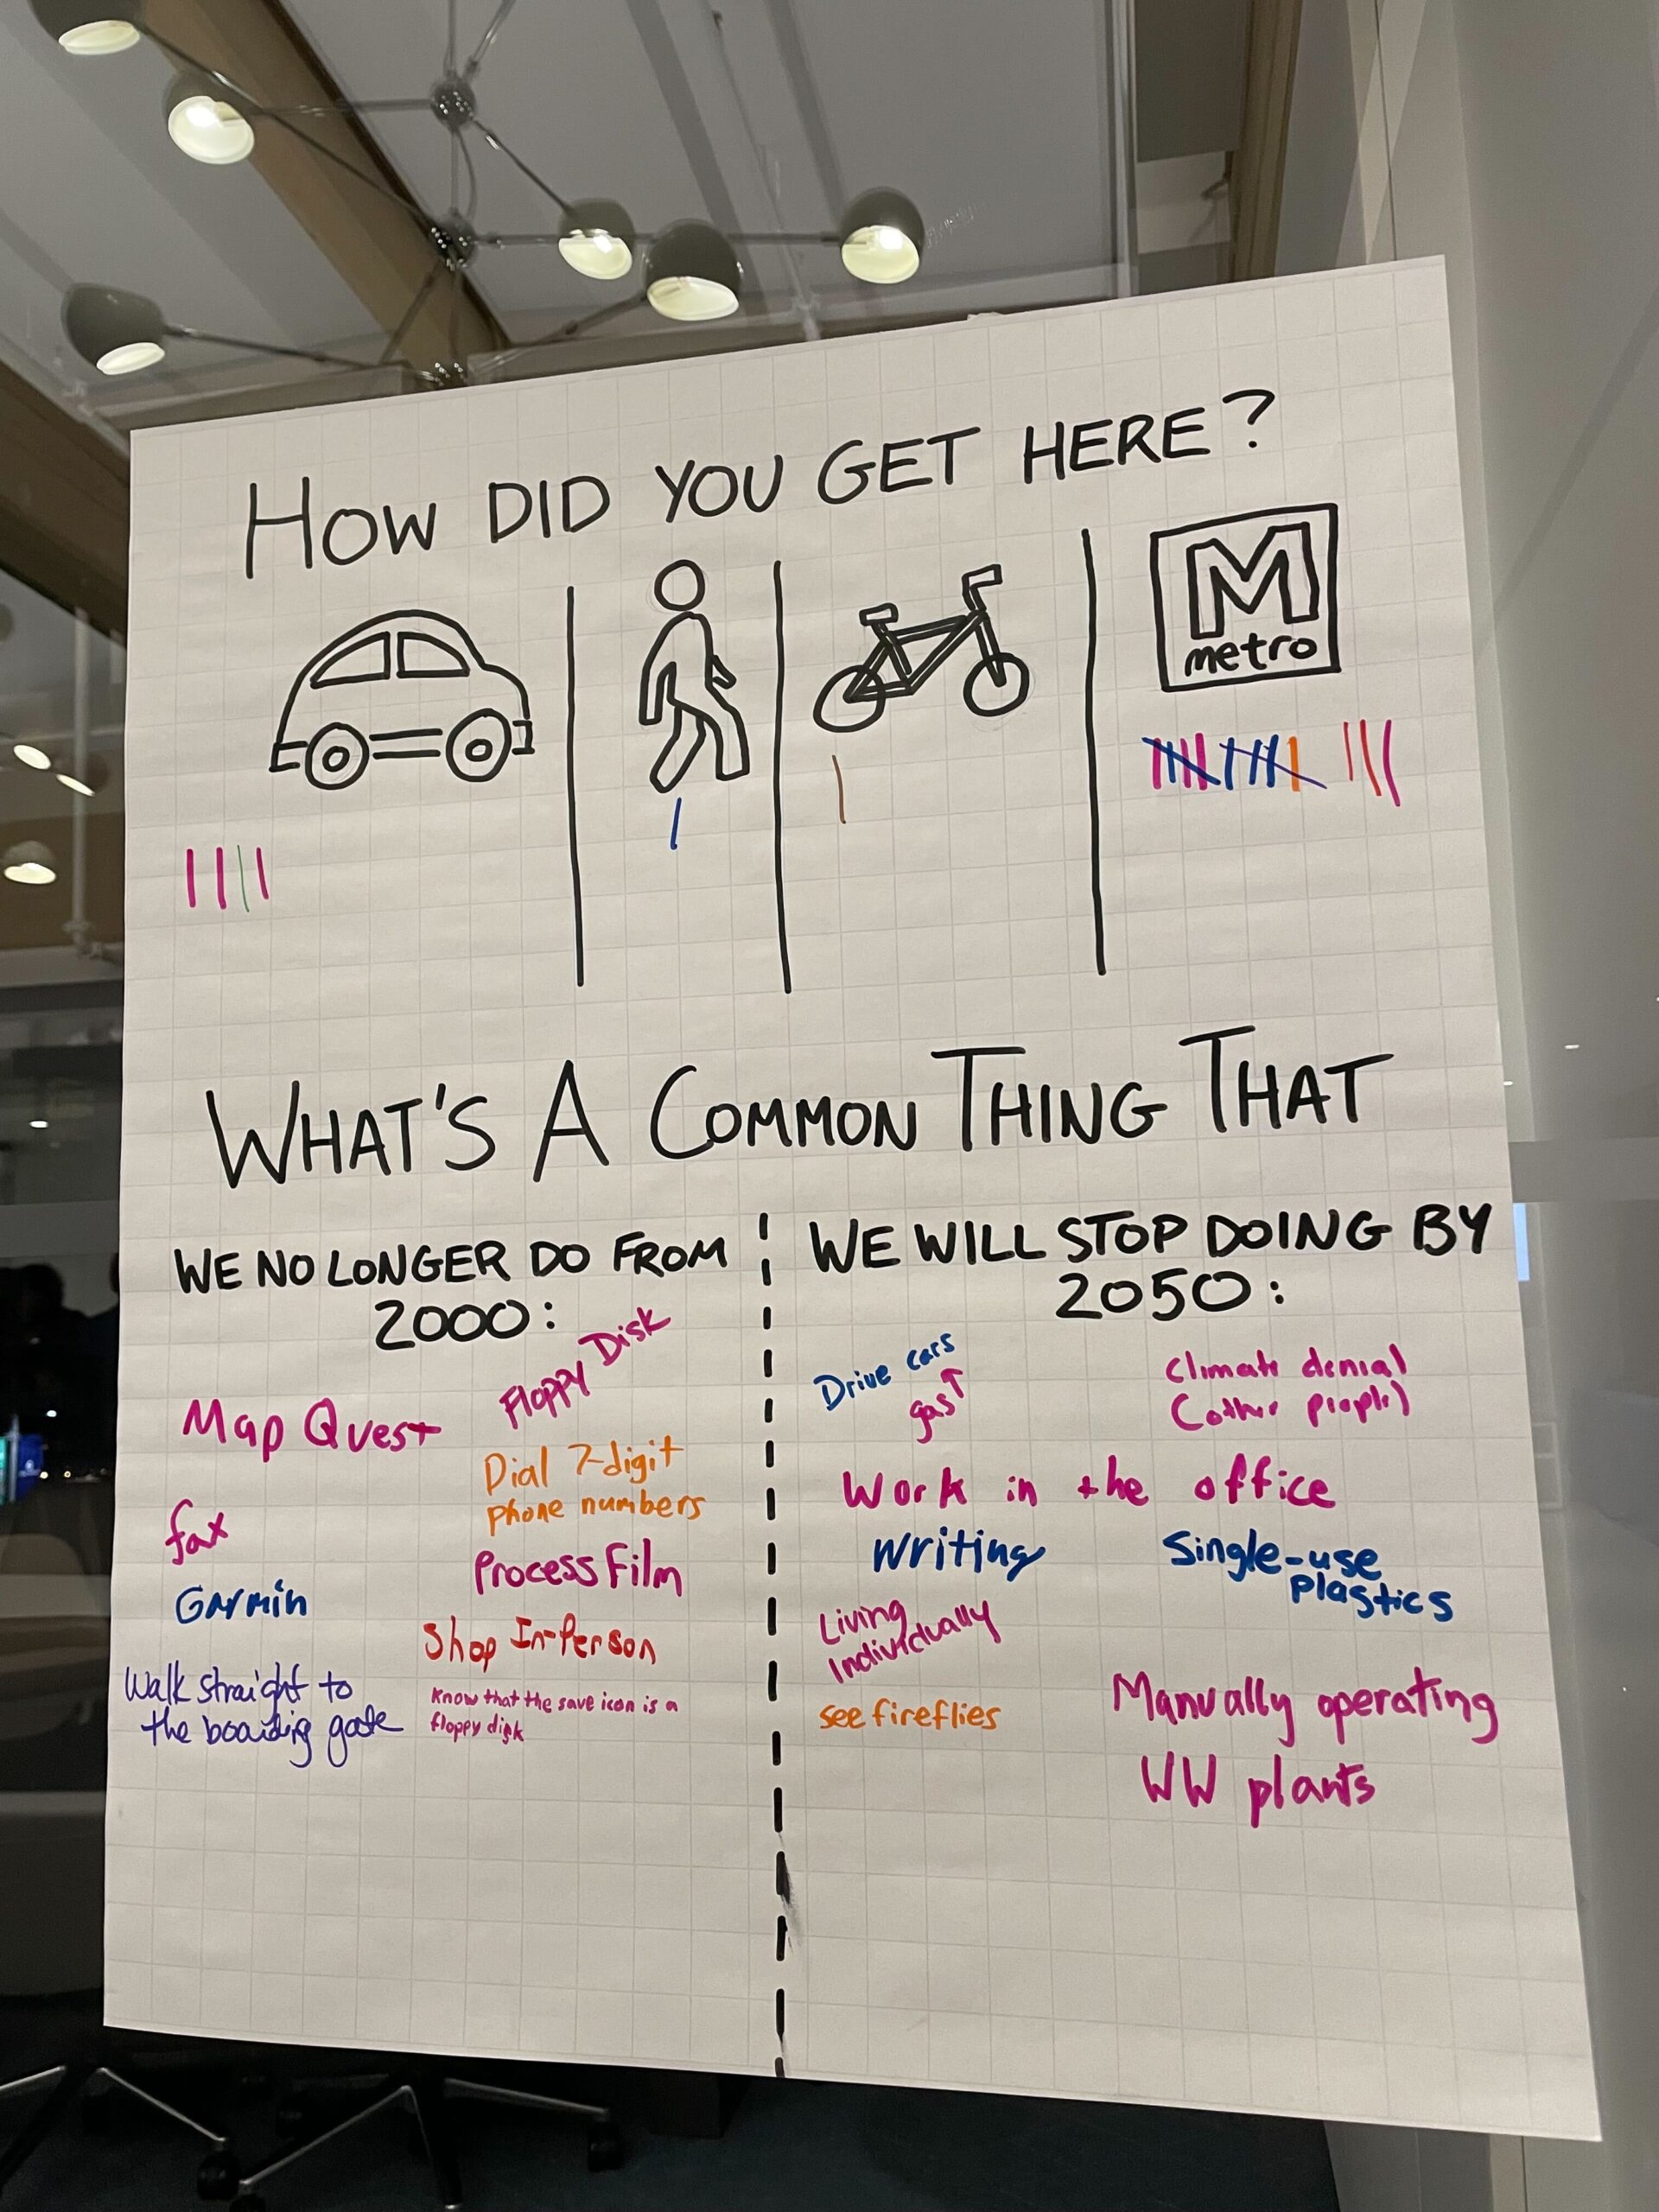 HOW DID YOU GET HERE?
M
metro
WHAT'S A COMMON THING THAT
WE NO LONGER DO FROM
2000:
Floppy Disk
Map Quest
Dial 7-digit
phone numbers
fax
Process Film
Garmin
Shop In-Person
Walk straight to
the boarding gate
Know that the save icon is a
floppy disk
WE WILL STOP DOING BY
2050:
Drive cars
gas
Climate denial
(other people)
Work in the office
Writing
Single-use
plastics
Living
Individually
see fireflies
Manually operating
WW plants